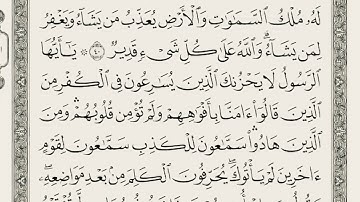 لَهُۥ مُلۡكُ ٱلسَّمَٰوَٰتِ وَٱلۡأَرۡضِ يُعَذِّبُ مَن يَشَآءُ وَيَغۡفِرُ
لِمَن يَشَآءُۗ وَٱللَّهُ عَلَىٰ كُلِّ شَيۡءٖ قَدِيرٞ ٤٠ ۞ يَٰٓأَيُّهَا
ٱلرَّسُولُ لَا يَحۡزُنكَ ٱلَّذِينَ يُسَٰرِعُونَ فِي ٱلۡكُفۡرِ مِنَ
ٱلَّذِينَ قَالُوٓاْ ءَامَنَّا بِأَفۡوَٰهِهِمۡ وَلَمۡ تُؤۡمِن قُلُوبُهُمۡۛ وَمِنَ
ٱلَّذِينَ هَادُواْۛ سَمَّٰعُونَ لِلۡكَذِبِ سَمَّٰعُونَ لِقَوۡمٍ
ءَاخَرِينَ لَمۡ يَأۡتُوكَۖ يُحَرِّفُونَ ٱلۡكَلِمَ مِنۢ بَعۡدِ مَوَاضِعِهِۦۖ